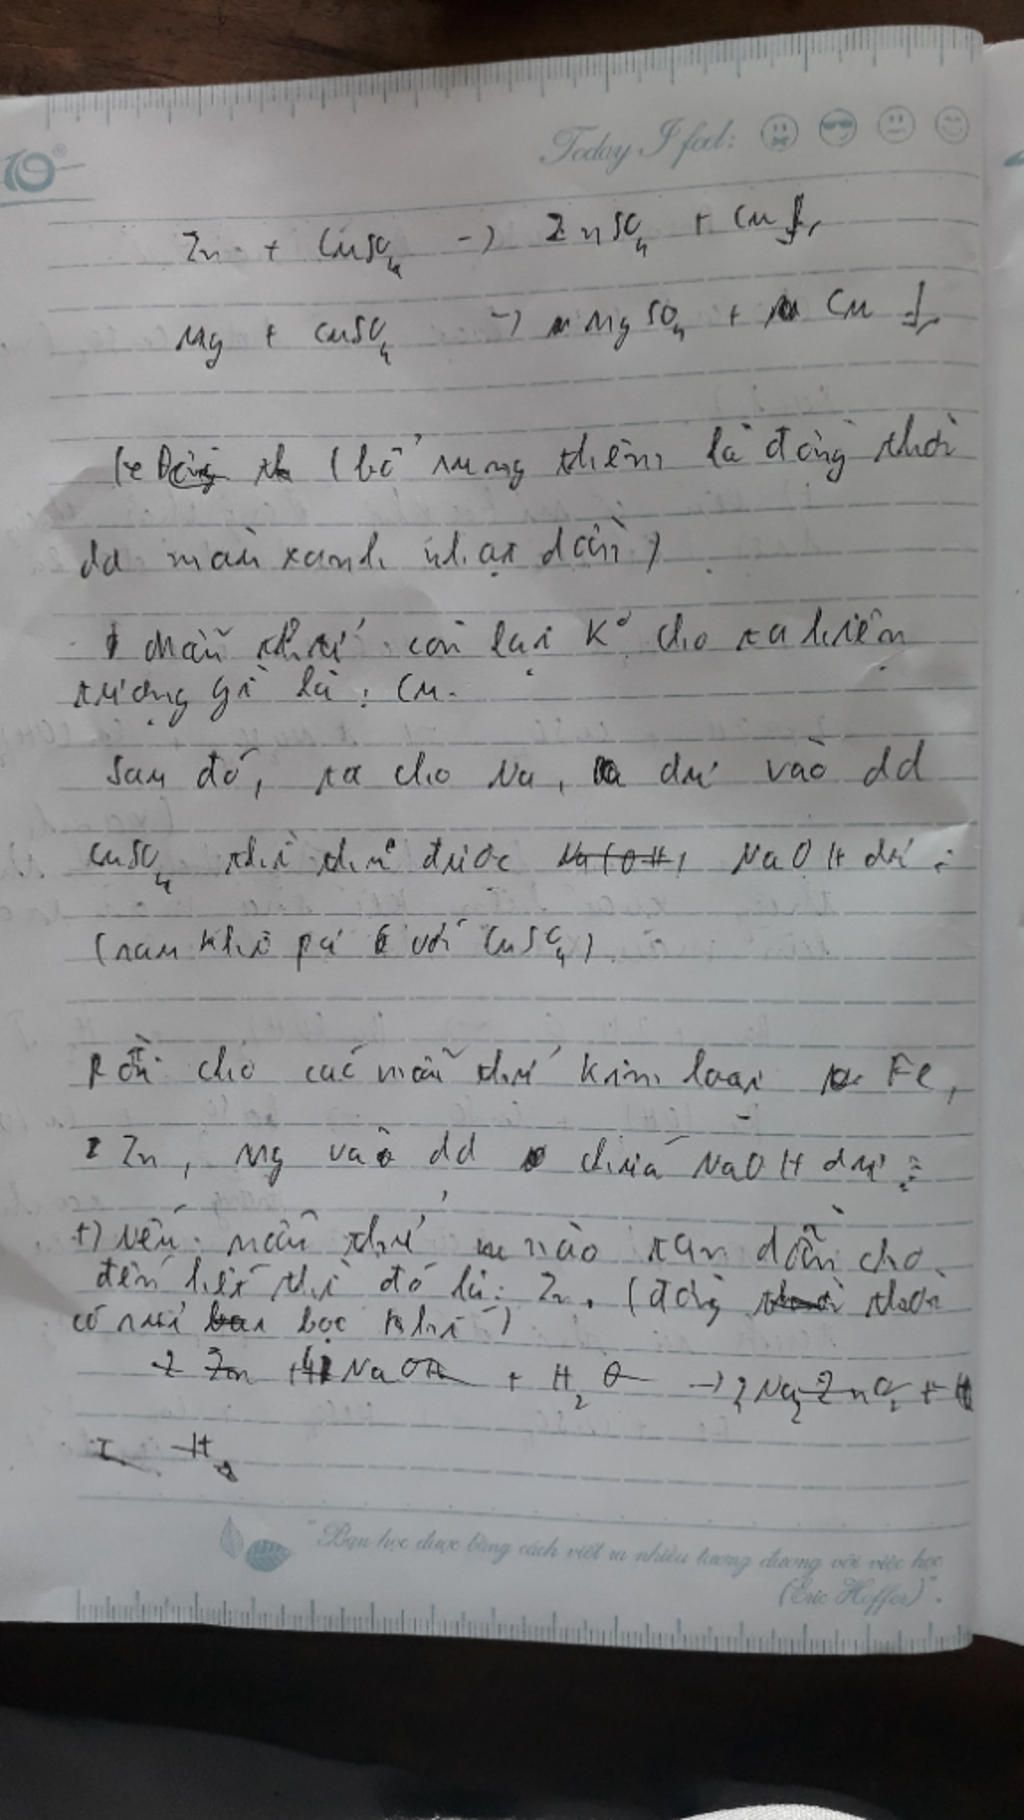 Today I feel:
Zn + CuSO4 -> ZnSO4 + Cu↓,
Mg + CuSO4 -> MgSO4 + Cu ↓,
(bổ sung thêm là đồng thời
dd màu xanh nhạt dần)
- mẫu thử còn lại K° cho ra hiện
tượng gì là: Cu.
Sau đó, ta cho Na, dư vào dd
CuSO4 thì thu được Na(OH) NaOH dư:
(sau khi pứ với CuSO4).
Rồi cho các mẫu thử kim loại Fe,
Zn, Mg vào dd chứa NaOH dư:
+) Nếu mẫu thử nào tan dần cho
đến hết thì đó là: Zn. (đồng thời
có sủi bọt khí)
2 Zn + 4 NaOH + H2O -> 2 Na2ZnO2 + H
H2
"Bạn học được bằng cách viết ra nhiều tương đương với việc học
(Eric Hoffer)".